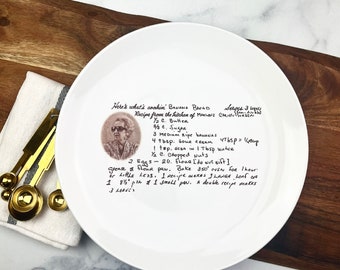 Here's what's cookin' Banana Bread Serves 3 loaves
Recipe from the kitchen of
½ C. Butter
Sugar
3 medium ripe bananas
4 tbsp. sour cream 4Tbsp = ¼ cup
1 tsp. soda in 1 tbsp water
½ C. chopped nuts
2 Eggs - 2C. flour (do not sift)
grease & flour pan. Bake 350° oven for 1 hour
or little less. 1 recipe makes 1 large loaf or
1 & 1 small pan. A double recipe makes
3